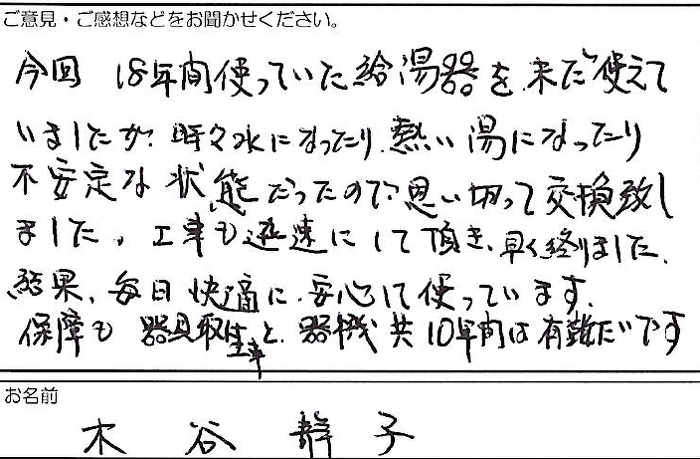 ご意見・ご感想などをお聞かせください。
今回 18年間使っていた給湯器を、未だ使えて
いましたが、時々水になったり、熱い湯になったり
不安定な状態だったので、思い切って交換致し
ました。工事も迅速にして頂き、早く終りました。
結果、毎日快適に、安心して使っています。
保障も 器具取 と、器機共10年間は有難いです
お名前
木谷 静子